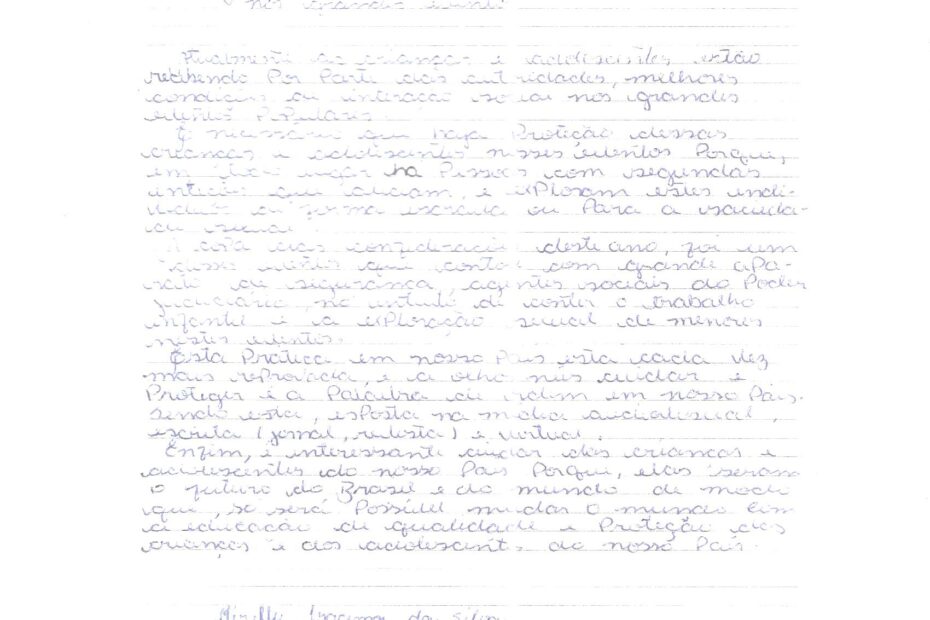 nos grandes evento
Atualmente as crianças e adolisentes estão
recebendo Por Parte das autoridades, melhores
condições de interação social nos grandes
eventos Populares
É necessario que haja Proteção dessas
crianças e adolisentes nesses eventos Porque,
em todo lugar há Pessoas com segundas
e exPloram estes indi-
viduos de forma escrava ou Para a
A cota das confederações deste ano, foi um
desses eventos que contou com grande aPa-
rato de segurança, agentes sociais do Poder
judiciario, no intuito de conter o trabalho
infantil e a exPloração sexual de menores
nestes eventos.
Esta Pratica em nosso Pais esta cada vez
mais reProvada, e a olho nús cuidar e
Proteger é a Palavra de ordem em nosso Pais.
sendo esta, esPosta na midia audiovisual,
escrita (jornal, revista) e virtual.
Enfim, é interessante cuidar das crianças e
adolescentes do nosso Pais Porque, elas seram
o futuro do Brasil e do mundo de modo
que, se será Possivel mudar o mundo com
a educação de qualidade e Proteção das
crianças e dos adolescents do nosso Pais.
da silva